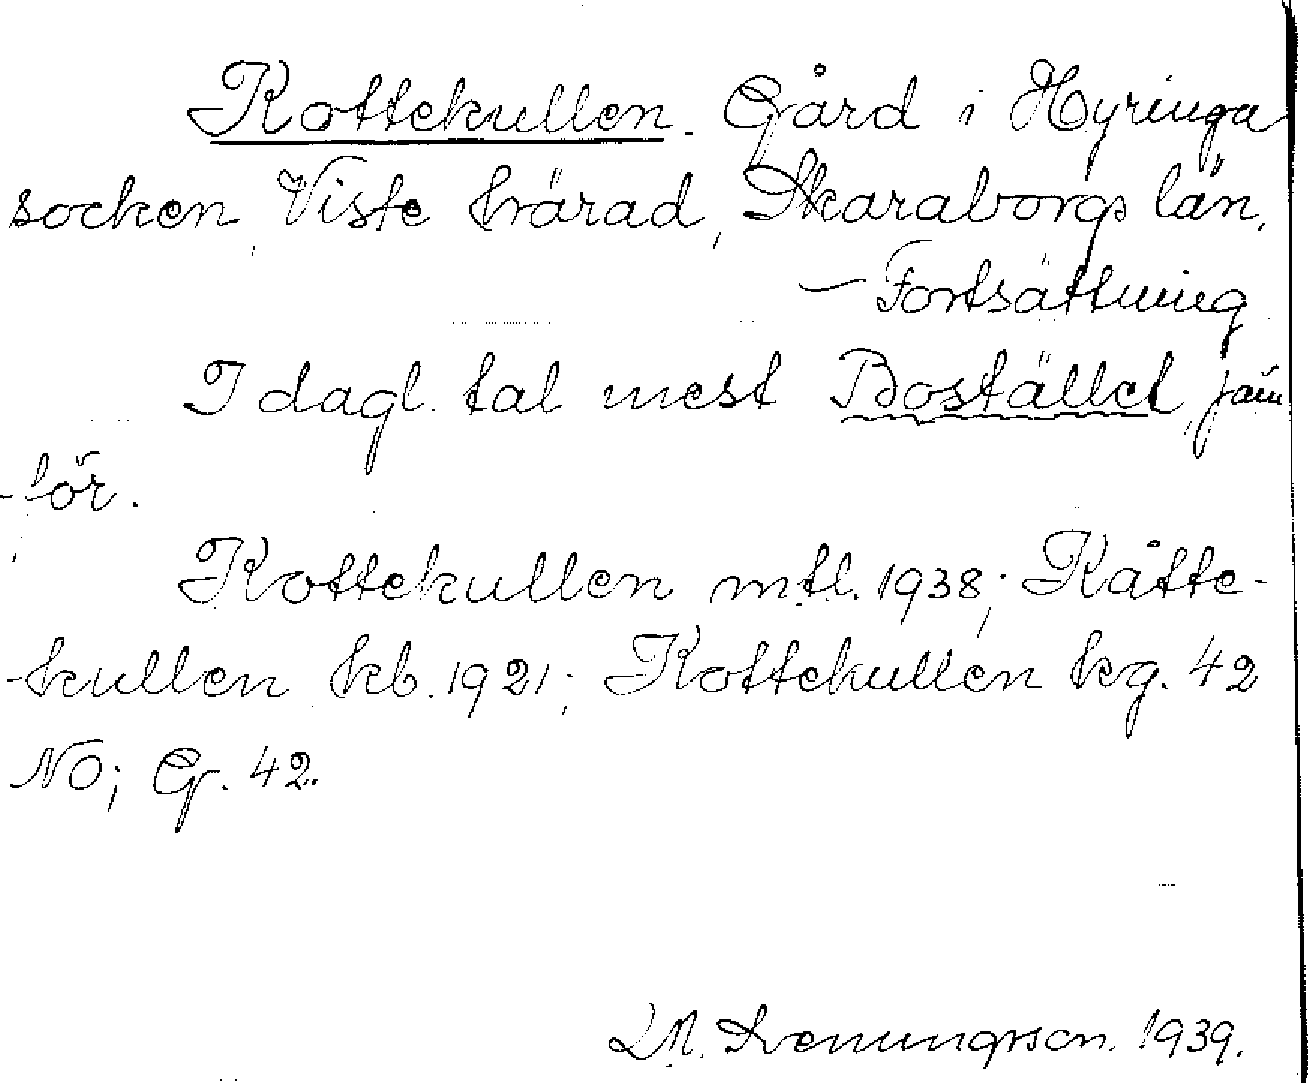 Kottekullen. Gård i Hyringa
socken, Viste härad, Skaraborgs län.
– Fortsättning
I dagl. tal mest Bostället, jäm
-för.
Kottekullen mtl. 1938; Kåtte-
-kullen kb. 1921; Kottekullen kg. 42
NO; G. 42.
1939.